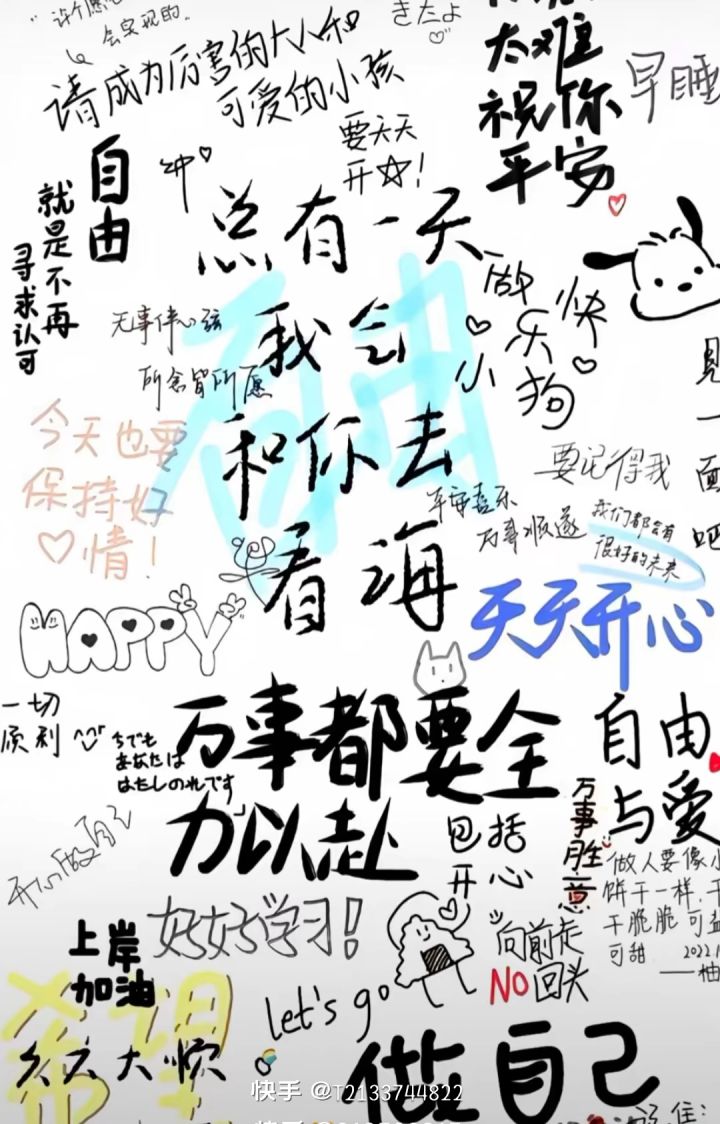 会实现的.
请成为厉害的大人和
可爱的小孩
きたよ
太难
祝你
平安
早睡
要天天
开☆!
冲
自由
就是不再
寻求认可
总有一天
我会
和你去
看海
自由
做快
乐
小狗
无事伴心弦
所念皆所愿
今天也要
保持好
♡情!
见
一
面
吧
要记得我
平安喜乐
万事顺遂
我们都会有
很好的未来
天天开心
HAPPY
一切
顺利
万事都要全
力以赴
包括
开心
自由
与爱
万事胜意
开心做自己
好好学习!
上岸
加油
向前走
NO回头
做人要像小
饼干一样,干
干脆脆可盐
可甜
——柚
希望
let's go
六六大顺
做自己
快手 @T2133744822